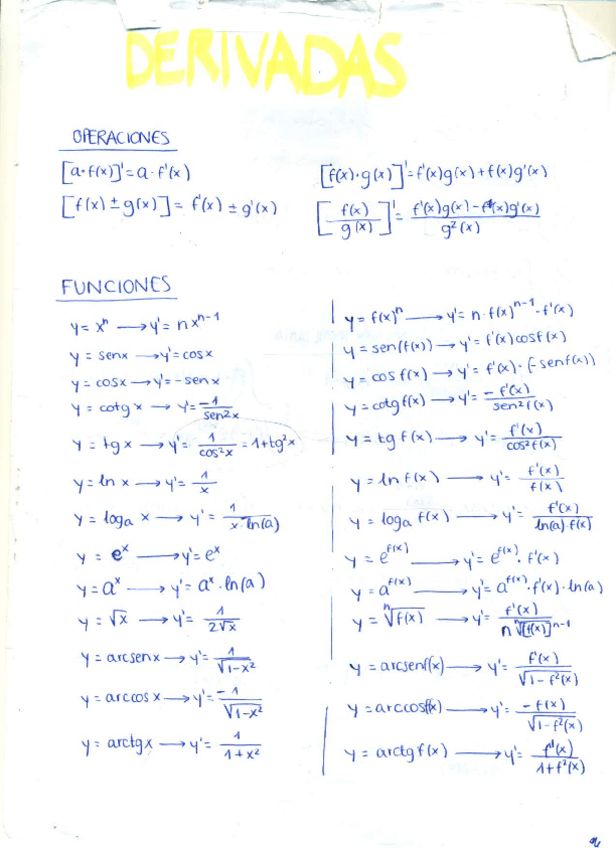 DERIVADAS
OPERACIONES
[a·f(x)]'=a·f'(x)
[f(x)±g(x)]'= f'(x) ± g'(x)
[f(x)·g(x)]'=f'(x)g(x)+f(x)g'(x)
[f(x)/g(x)]'= (f'(x)g(x)-f(x)g'(x))/g²(x)
FUNCIONES
y= xⁿ ⟶ y'= nxⁿ⁻¹
y= senx ⟶ y'=cosx
y=cosx ⟶ y'=-senx
y= cotgx ⟶ y'= -1/sen²x
y= tgx ⟶ y'= 1/cos²x =1+tg²x
y= ln x ⟶ y'= 1/x
y= logₐ x ⟶ y'= 1/(x·ln(a))
y= eˣ ⟶ y'=eˣ
y= aˣ ⟶ y'= aˣ·ln(a)
y= √x ⟶ y'= 1/(2√x)
y= arcsenx ⟶ y'= 1/√(1-x²)
y= arccosx ⟶ y'= -1/√(1-x²)
y= arctgx ⟶ y'= 1/(1+x²)
y= f(x)ⁿ ⟶ y'= n·f(x)ⁿ⁻¹·f'(x)
y= sen(f(x)) ⟶ y'= f'(x)cosf(x)
y= cosf(x) ⟶ y'= f'(x)·(-senf(x))
y= cotgf(x) ⟶ y'= -f'(x)/sen²f(x)
y= tgf(x) ⟶ y'= f'(x)/cos²f(x)
y= lnf(x) ⟶ y'= f'(x)/f(x)
y= logₐ f(x) ⟶ y'= f'(x)/(ln(a)·f(x))
y= e^f(x) ⟶ y'= e^f(x)·f'(x)
y= a^f(x) ⟶ y'= a^f(x)·f'(x)·ln(a)
y= ⁿ√f(x) ⟶ y'= f'(x)/(n ⁿ√[f(x)]ⁿ⁻¹)
y= arcsenf(x) ⟶ y'= f'(x)/√(1-f²(x))
y= arccosf(x) ⟶ y'= -f(x)/√(1-f²(x))
y= arctgf(x) ⟶ y'= f'(x)/(1+f²(x))